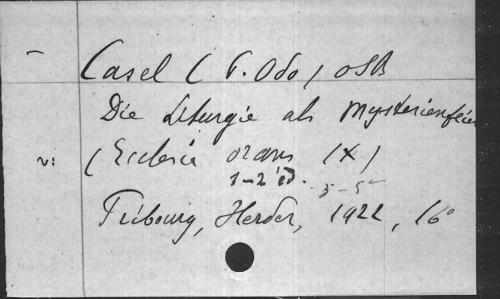 Casel (P. Odo) OSB
Die Liturgie als Mysterienfeier
v: (Ecclesia orans IX)
1-2 éd. 3-5
Fribourg, Herder, 1922, 16°